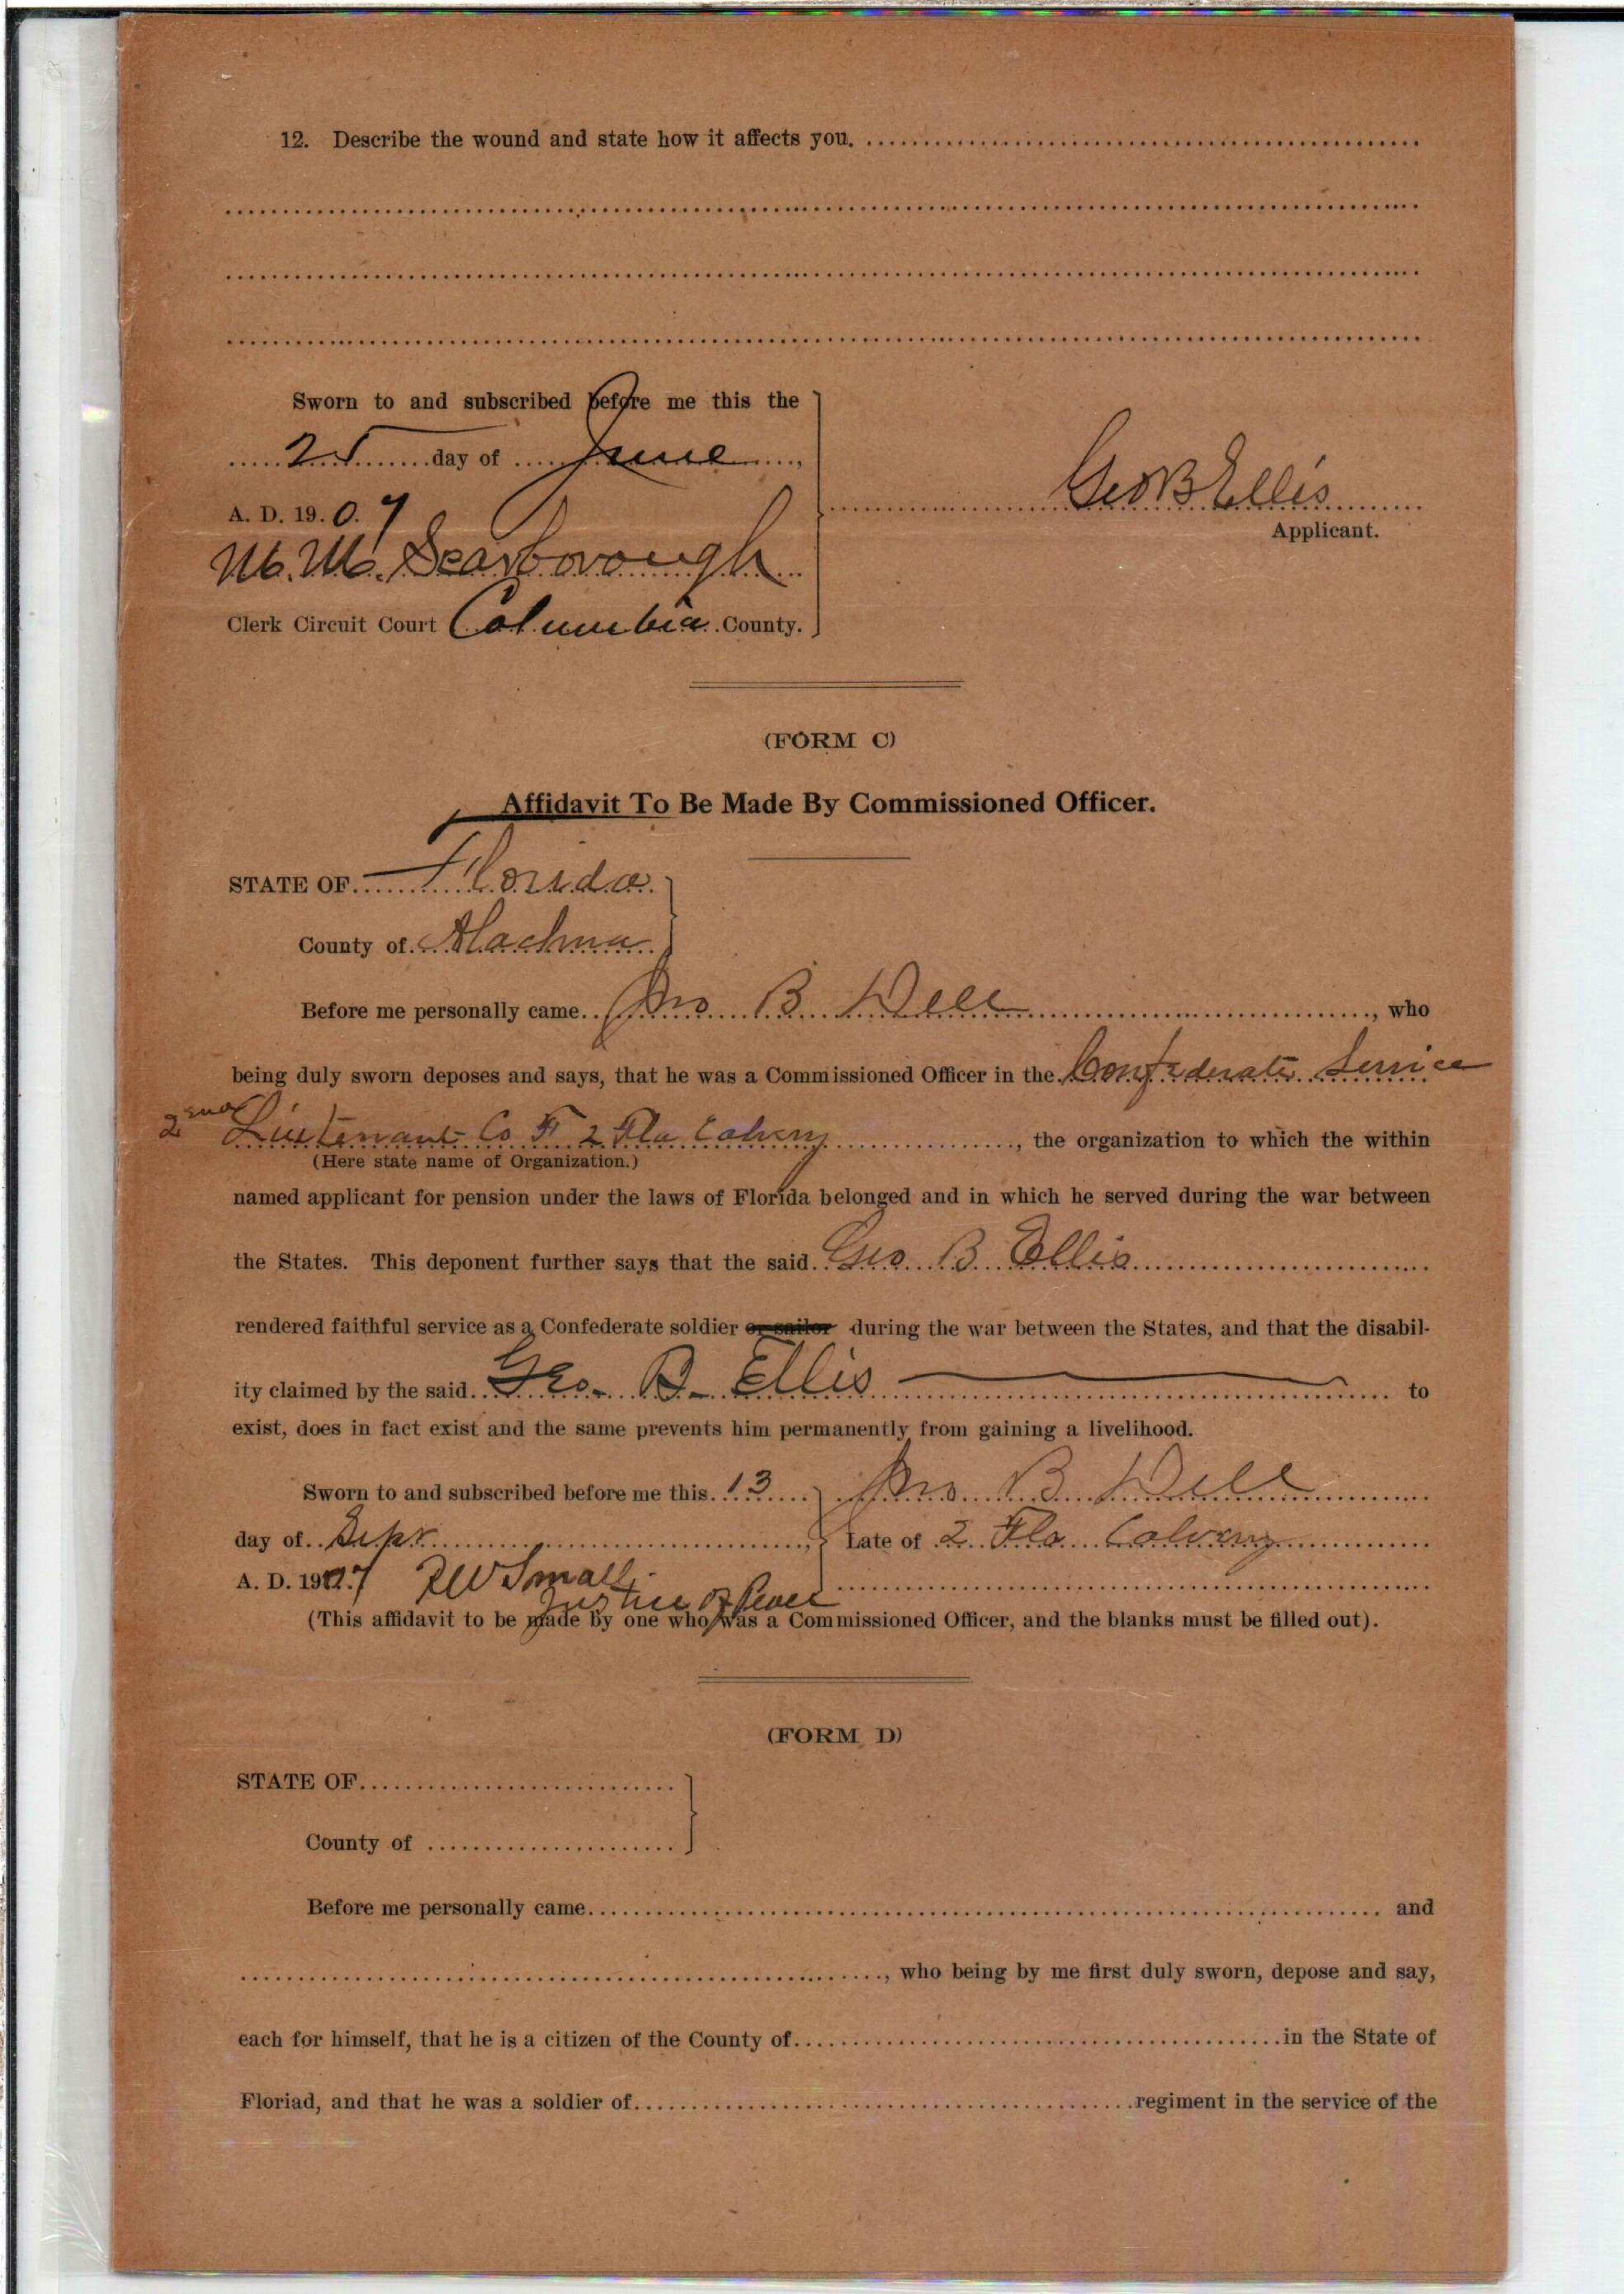 12. Describe the wound and state how it affects you.
Sworn to and subscribed before me this the
25 day of June,
A. D. 1907
M. M. Scarborough
Clerk Circuit Court Columbia County.
Geo B Ellis
Applicant.
(FORM C)
Affidavit To Be Made By Commissioned Officer.
STATE OF Florida
County of Alachua
Before me personally came Jno B Dell, who
being duly sworn deposes and says, that he was a Commissioned Officer in the Confederate Service
2nd Lieutenant Co F 2 Fla Calvery, the organization to which the within
(Here state name of Organization.)
named applicant for pension under the laws of Florida belonged and in which he served during the war between
the States. This deponent further says that the said Geo B Ellis
rendered faithful service as a Confederate soldier or sailor during the war between the States, and that the disabil-
ity claimed by the said Geo. B. Ellis to
exist, does in fact exist and the same prevents him permanently from gaining a livelihood.
Sworn to and subscribed before me this 13 Jno B Dell
day of Sept, Late of 2 Fla Calvery
A. D. 1907 Small
Justice of Peace
(This affidavit to be made by one who was a Commissioned Officer, and the blanks must be filled out).
(FORM D)
STATE OF
County of
Before me personally came and
, who being by me first duly sworn, depose and say,
each for himself, that he is a citizen of the County of in the State of
Floriad, and that he was a soldier of regiment in the service of the